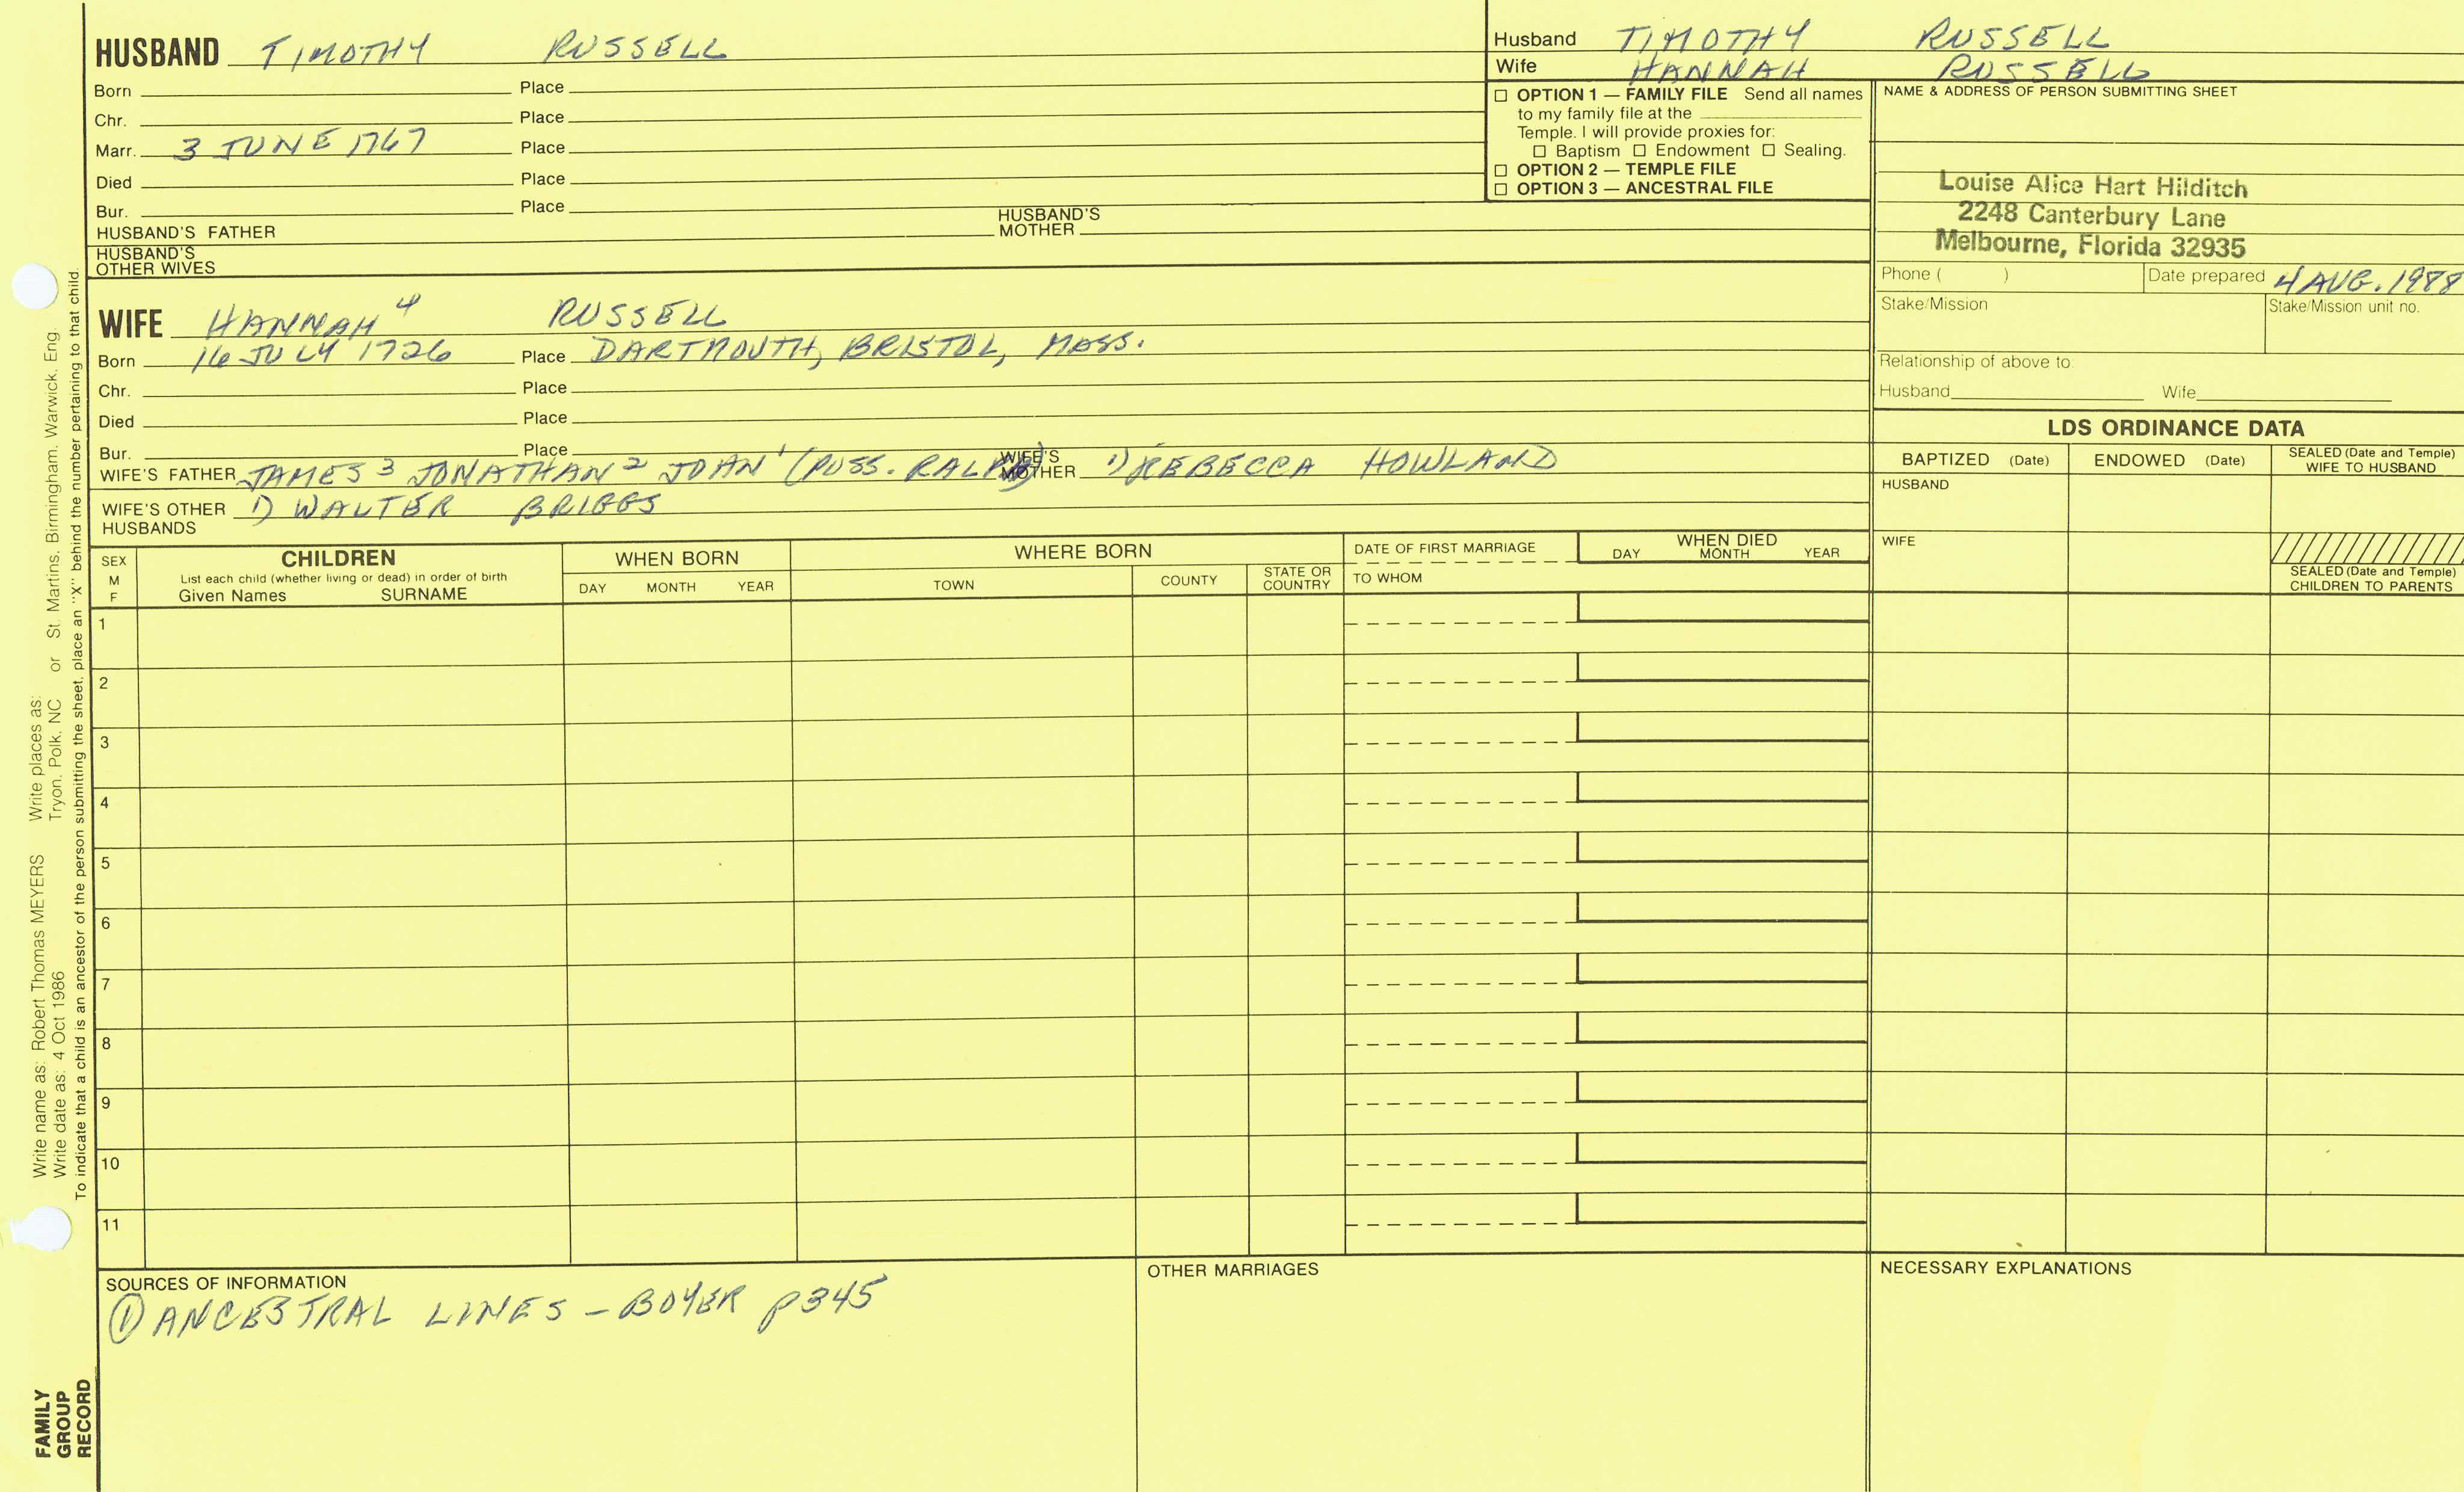 HUSBAND TIMOTHY RUSSELL
Born Place
Chr. Place
Marr. 3 JUNE 1767 Place
Died Place
Bur. Place
HUSBAND'S FATHER HUSBAND'S MOTHER
HUSBAND'S OTHER WIVES
WIFE HANNAH 4 RUSSELL
Born 16 JULY 1726 Place DARTMOUTH, BRISTOL, MASS.
Chr. Place
Died Place
Bur. Place
WIFE'S FATHER JAMES 3 JONATHAN 2 JOHN 1 (POSS. RALPH) WIFE'S MOTHER 1) REBECCA HOWLAND
WIFE'S OTHER HUSBANDS 1) WALTER BRIGGS
Husband TIMOTHY RUSSELL
Wife HANNAH RUSSELL
☐ OPTION 1 — FAMILY FILE Send all names
to my family file at the
Temple. I will provide proxies for:
☐ Baptism ☐ Endowment ☐ Sealing.
☐ OPTION 2 — TEMPLE FILE
☐ OPTION 3 — ANCESTRAL FILE
NAME & ADDRESS OF PERSON SUBMITTING SHEET
Louise Alice Hart Hilditch
2248 Canterbury Lane
Melbourne, Florida 32935
Phone ( ) Date prepared 4 AUG. 1988
Stake/Mission Stake/Mission unit no.
Relationship of above to:
Husband Wife
LDS ORDINANCE DATA
BAPTIZED (Date) ENDOWED (Date) SEALED (Date and Temple) WIFE TO HUSBAND
HUSBAND
WIFE
SEALED (Date and Temple)
CHILDREN TO PARENTS
SEX M F
CHILDREN
List each child (whether living or dead) in order of birth
Given Names SURNAME
WHEN BORN
DAY MONTH YEAR
WHERE BORN
TOWN COUNTY STATE OR COUNTRY
DATE OF FIRST MARRIAGE
TO WHOM
WHEN DIED
DAY MONTH YEAR
1
2
3
4
5
6
7
8
9
10
11
SOURCES OF INFORMATION
① ANCESTRAL LINES - BOYER p345
OTHER MARRIAGES
NECESSARY EXPLANATIONS
Write name as: Robert Thomas MEYERS Write places as:
Write date as: 4 Oct 1986 Tryon, Polk, NC or St. Martins, Birmingham, Warwick, Eng.
To indicate that a child is an ancestor of the person submitting the sheet, place an "X" behind the number pertaining to that child.
FAMILY
GROUP
RECORD